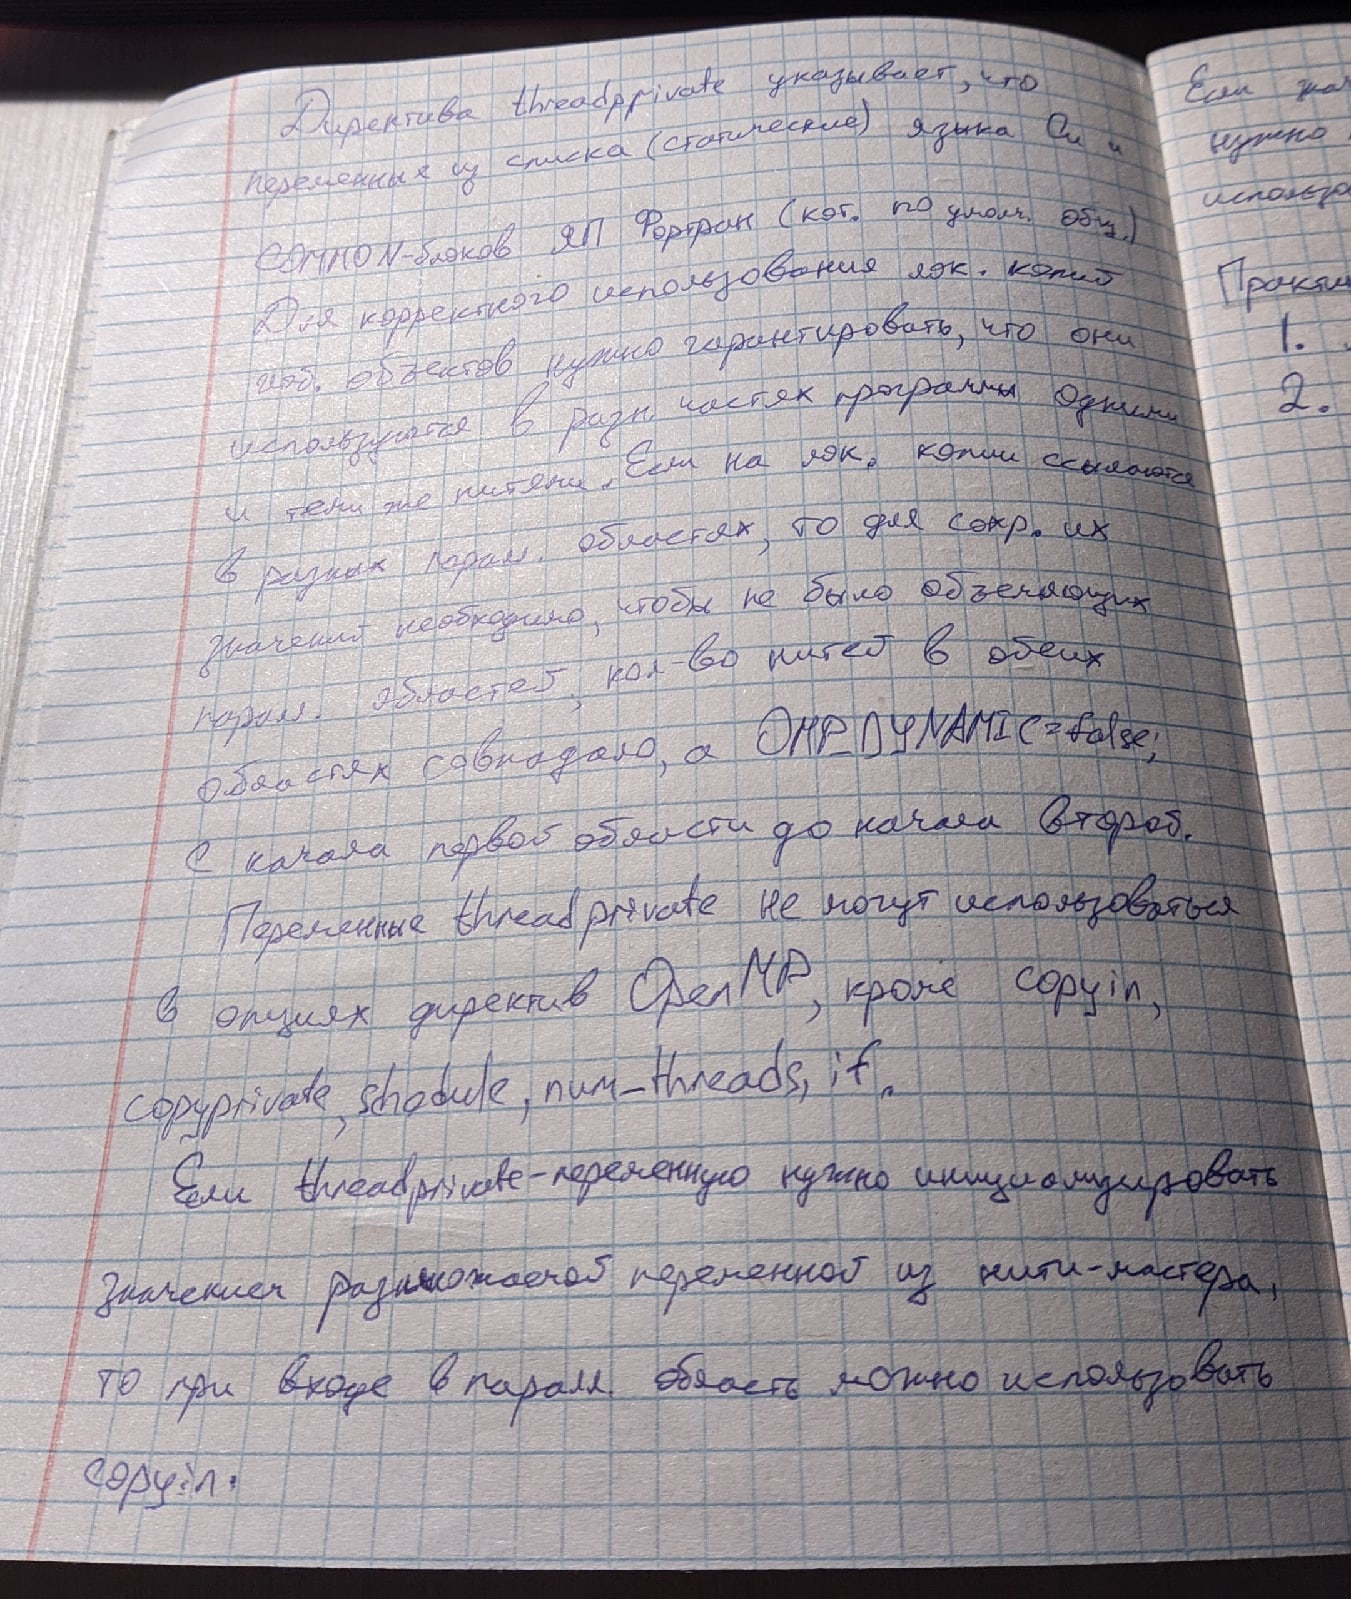 Директива threadpprivate указывает, что
переменные из списка (статические) языка Си и
COMMON-блоков ЯП Фортран (кот. по умолч. общ.)
Для корректного использования лок. копий
глоб. объектов нужно гарантировать, что они
используются в разн. частях программы одними
и теми же нитями. Если на лок. копии ссылаются
в разных парал. областях, то для сохр. их
значений необходимо, чтобы не было объемлющих
парал. областей, кол-во нитей в обеих
областях совпадало, а OMP_DYNAMIC=false;
с начала первой области до начала второй.
Переменные threadprivate не могут использоваться
в опциях директив OpenMP, кроме copyin,
copyprivate, shedule, num_threads, if.
Если threadprivate-переменную нужно инициализировать
значением размножаемой переменной из нити-мастера,
то при входе в парал. область можно использовать
copyin.
Если
нужно
Практи
1.
2.